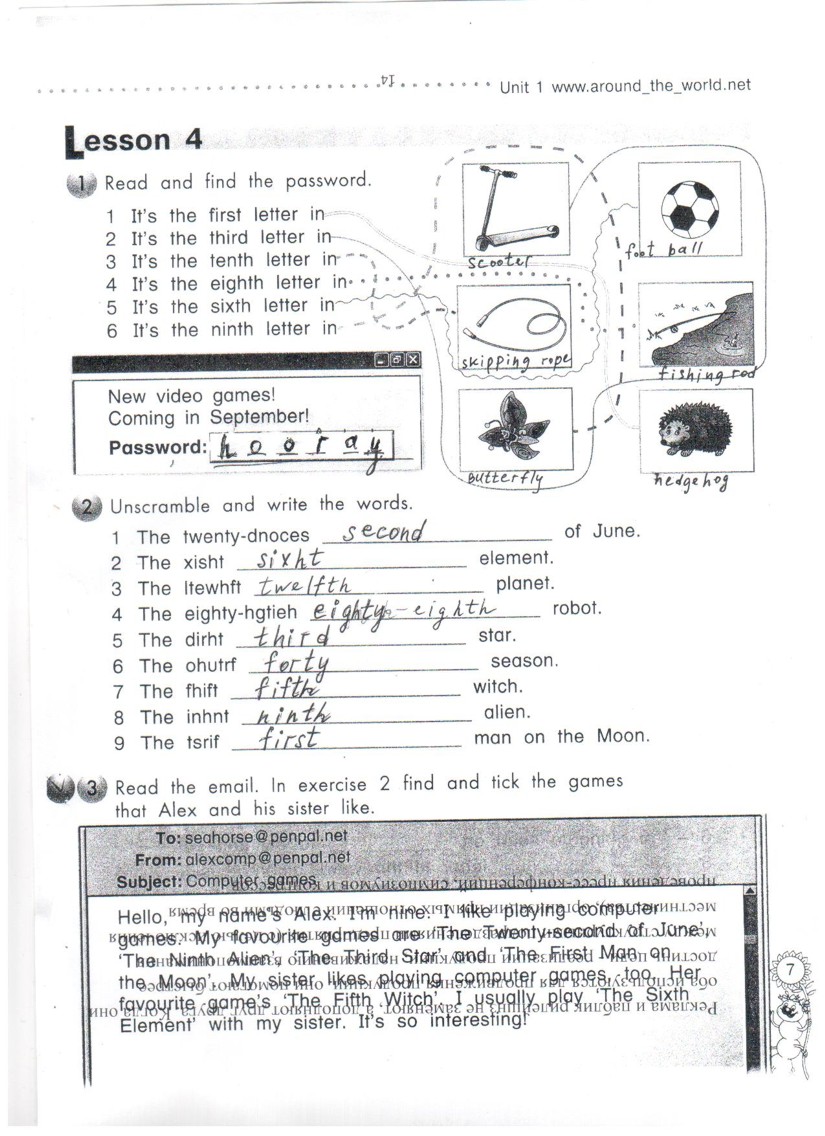 14
Unit 1 www.around_the_world.net
Lesson 4
1 Read and find the password.
1 It's the first letter in
2 It's the third letter in
3 It's the tenth letter in
4 It's the eighth letter in
5 It's the sixth letter in
6 It's the ninth letter in
scooter
foot ball
skipping rope
fishing rod
butterfly
hedgehog
New video games!
Coming in September!
Password: h o o r a y
2 Unscramble and write the words.
1 The twenty-dnoces second of June.
2 The xisht sixht element.
3 The ltewhft twelfth planet.
4 The eighty-hgtieh eighty-eighth robot.
5 The dirht third star.
6 The ohutrf forty season.
7 The fhift fifth witch.
8 The inhnt ninth alien.
9 The tsrif first man on the Moon.
3 Read the email. In exercise 2 find and tick the games
that Alex and his sister like.
To: seahorse@penpal.net
From: alexcomp@penpal.net
Subject: Computer games
Hello, my name's Alex. I'm nine. I like playing computer
games. My favourite games are 'The Twenty-second of June',
'The Ninth Alien', 'The Third Star' and 'The First Man on
the Moon'. My sister likes playing computer games, too. Her
favourite game's 'The Fifth Witch'. I usually play 'The Sixth
Element' with my sister. It's so interesting!
7
Реклама и паблик рилейшнз не заменяют, а дополняют друг друга. Когда они
оба используются для продвижения продукции, они помогают быстрее
проведения пресс-конференций, симпозиумов и конгрессов